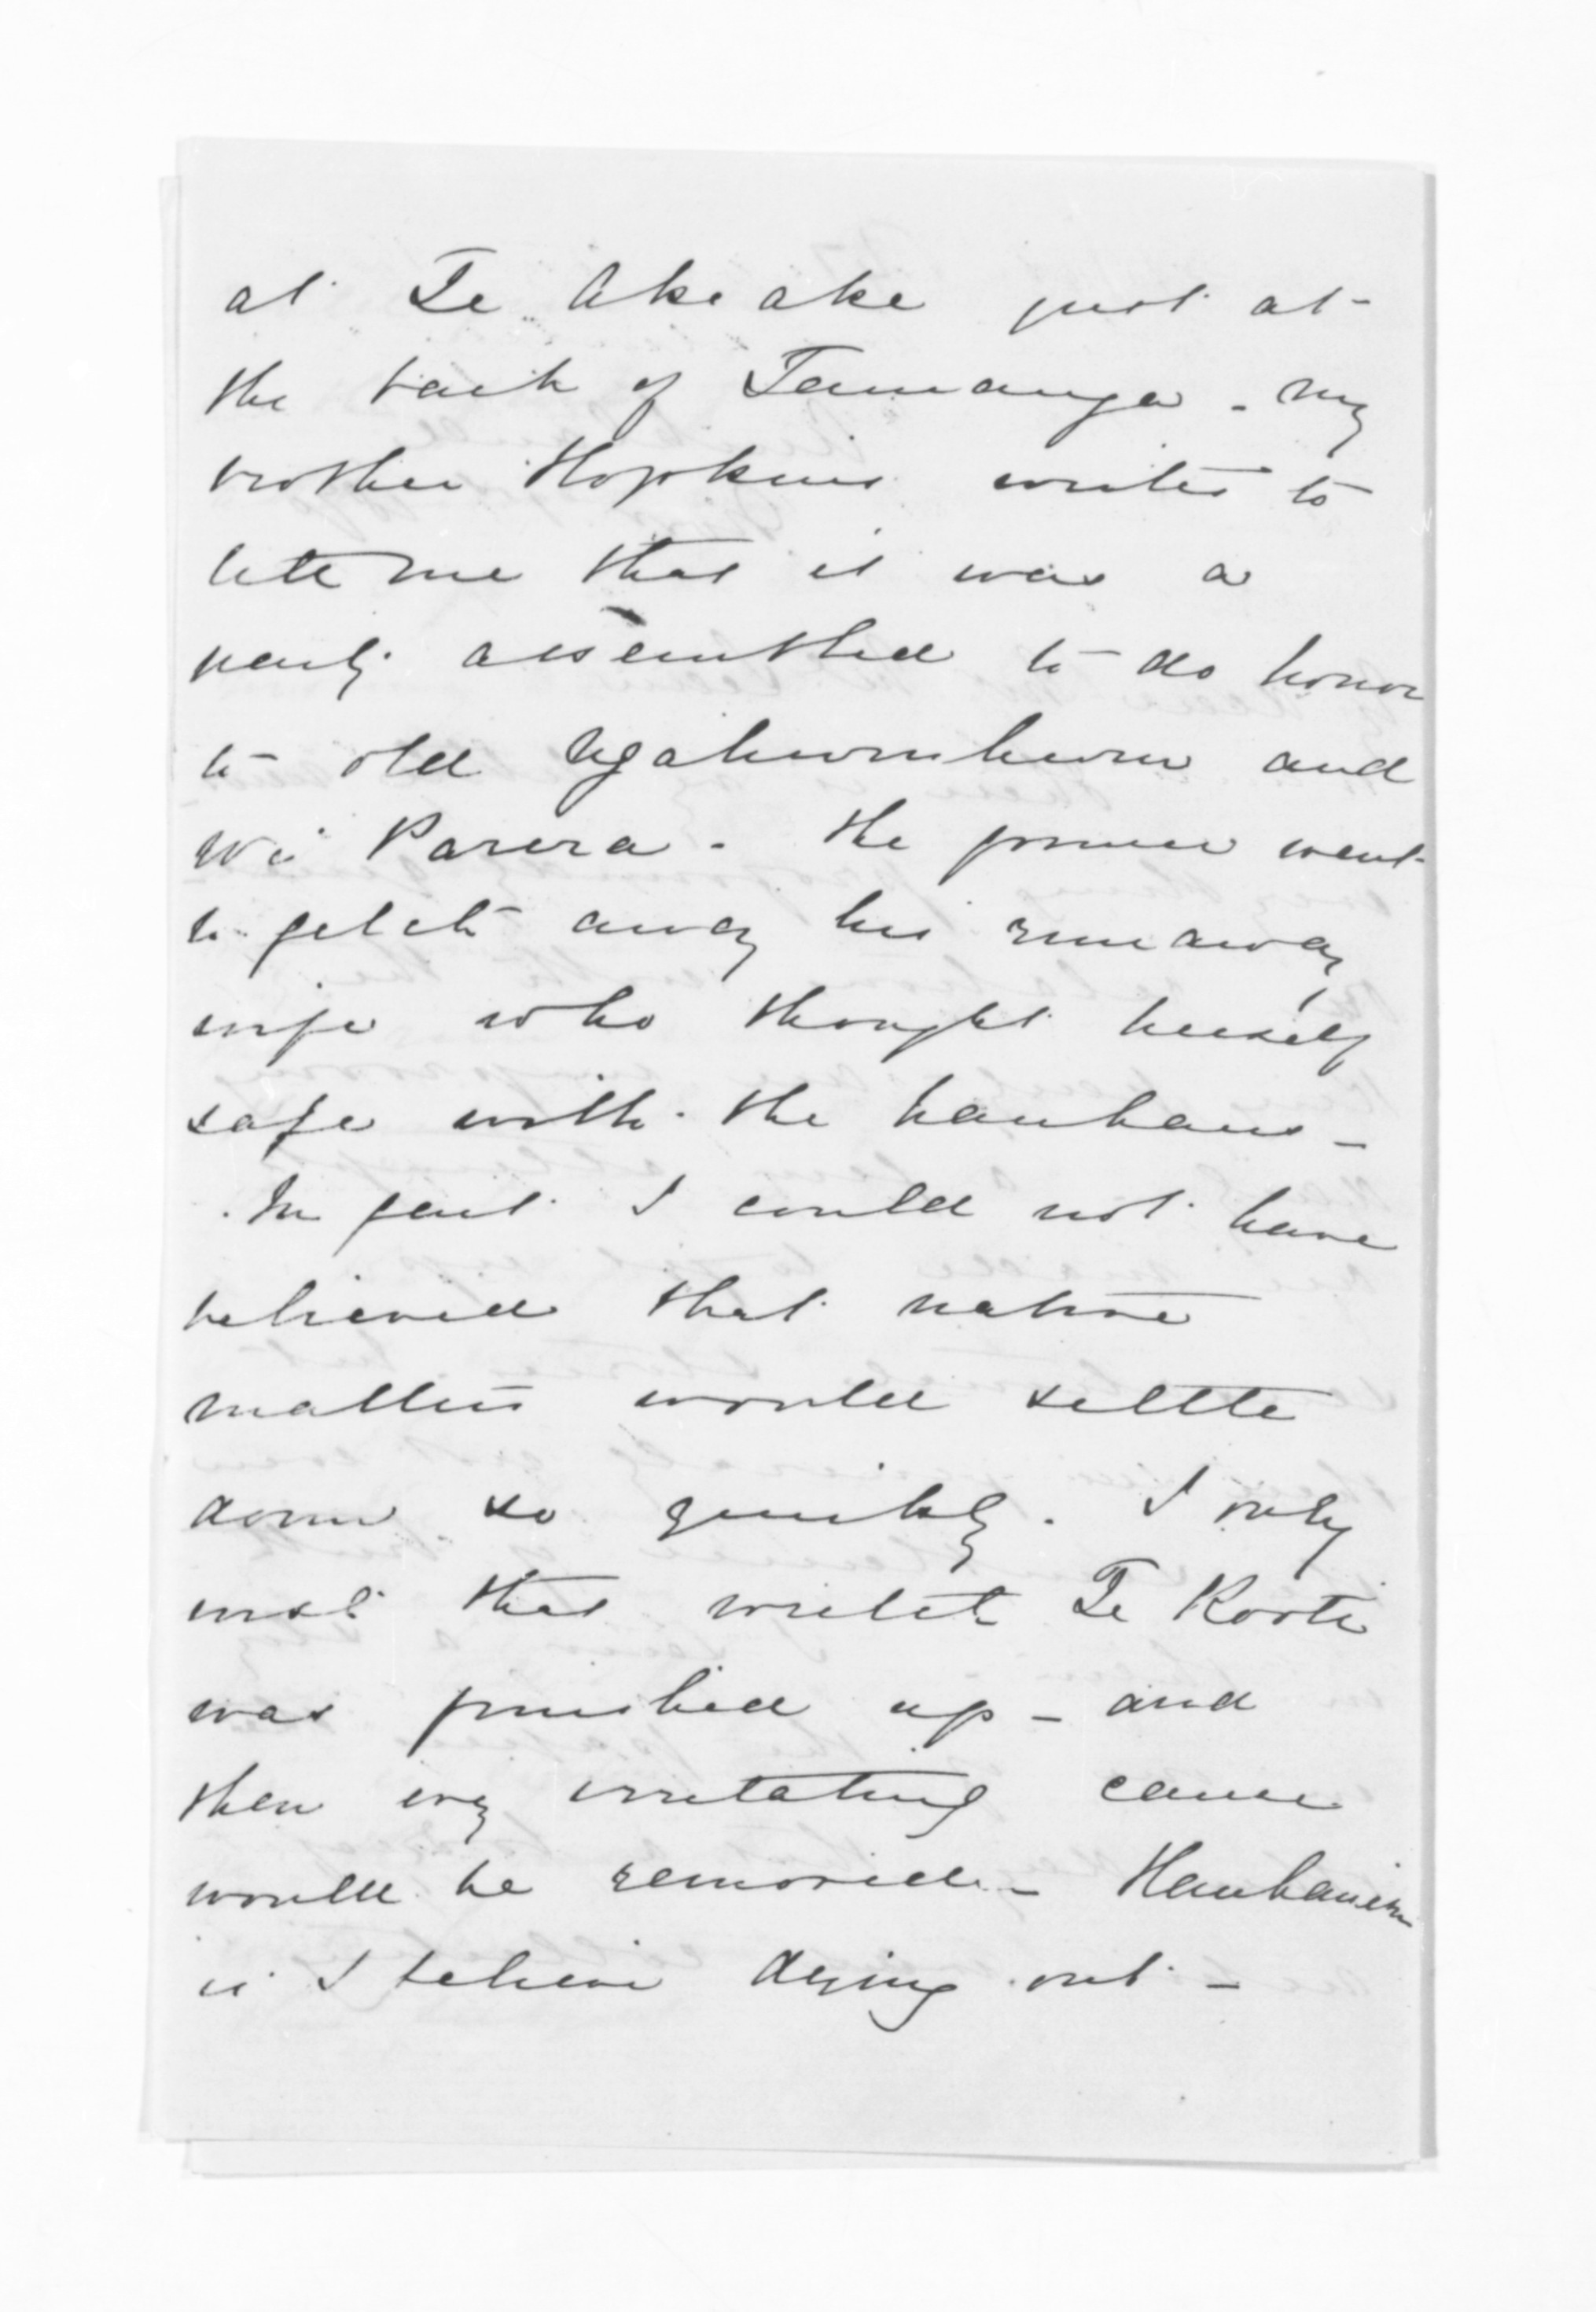 at Te Akeake just at
the back of Taunanga - my
brother Hopkins writes to
tell me that it was a
party assembled to do honor
to old Ngahuruhuru and
Wi Parera. The former went
to fetch away his runaway
wife who thought herself
safe with the hauhaus -
In fact I could not have
believed that native
matters would settle
down so quickly. I only
wish that wretch Te Kooti
was finished up - and
then every irritating cause
would be removed - Hauhauism
is I believe dying out -